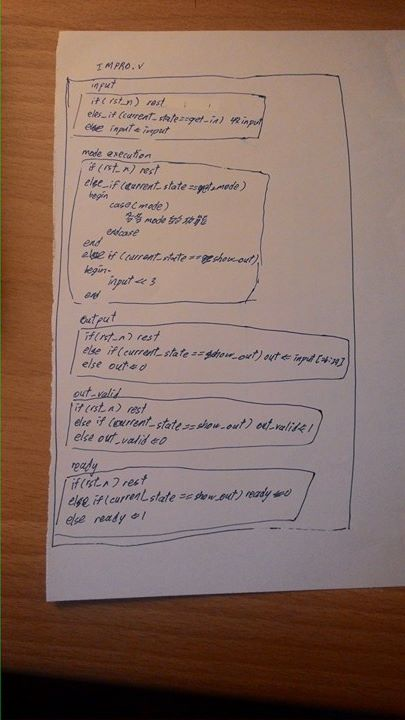 IMPRO.v
input
if(rst_n) rest
eles_if(current_state==get_in) input
else input <= input
mode execution
if(rst_n) rest
else_if(current_state==get_mode)
begin
case(mode)
mode
endcase
end
else if(current_state==show_out)
begin
input << 3
end
output
if(rst_n) rest
else if(current_state==show_out) out <= input
else out <= 0
out_valid
if(rst_n) rest
else if(current_state==show_out) out_valid <= 1
else out_valid <= 0
ready
if(rst_n) rest
else if(current_state==show_out) ready <= 0
else ready <= 1